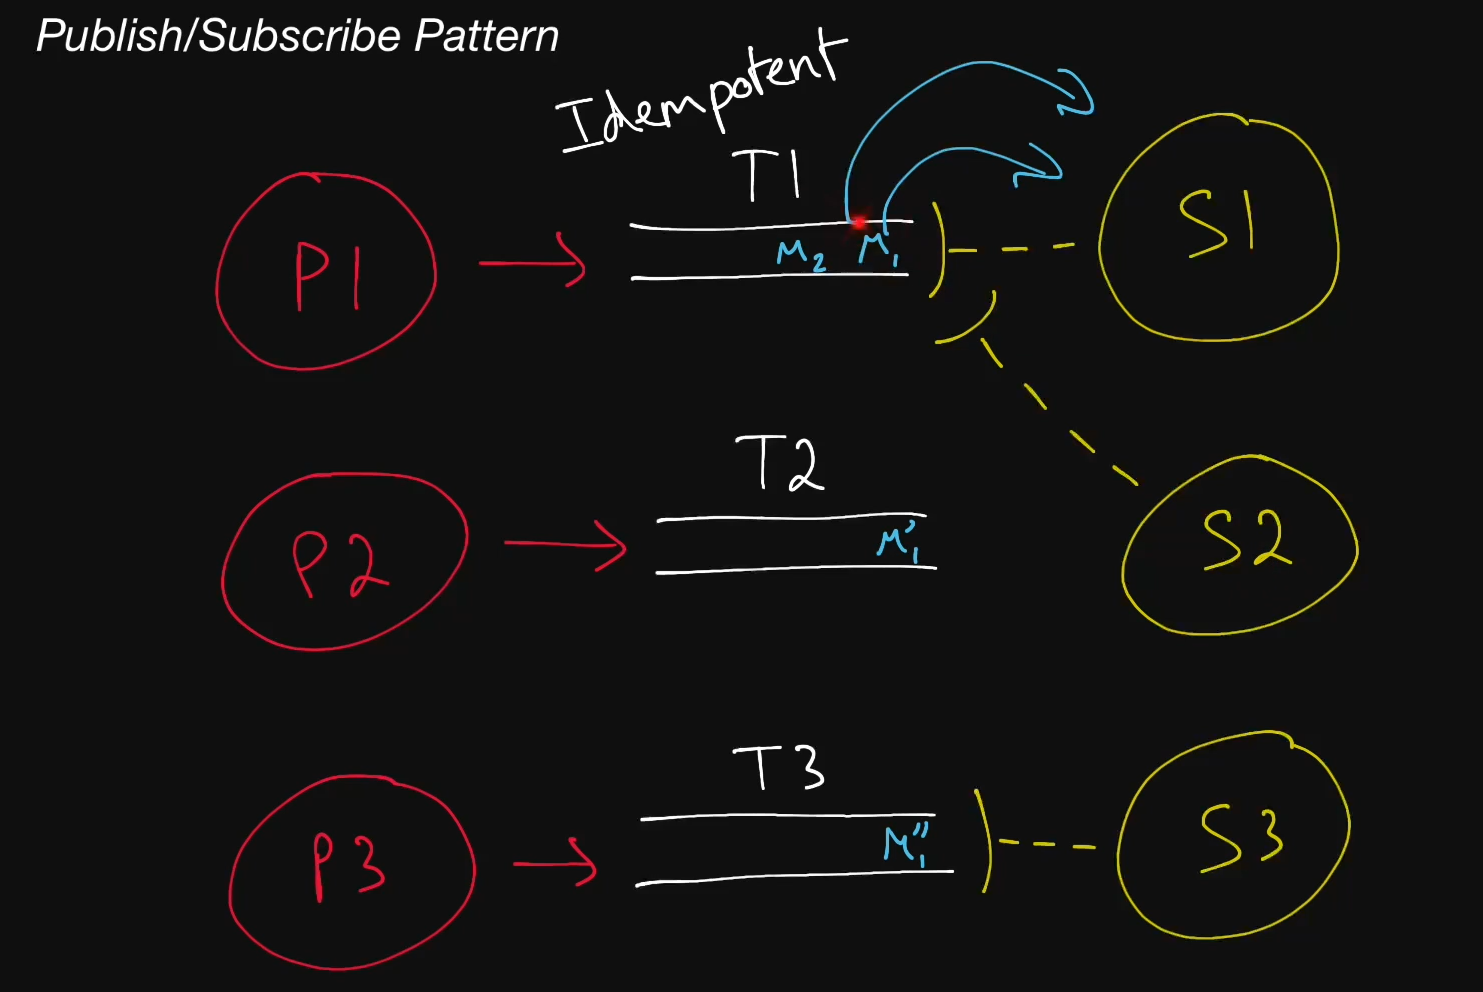 Publish/Subscribe Pattern
Idempotent
T1
P1
M2 M1
S1
T2
P2
M'1
S2
T3
P3
M''1
S3